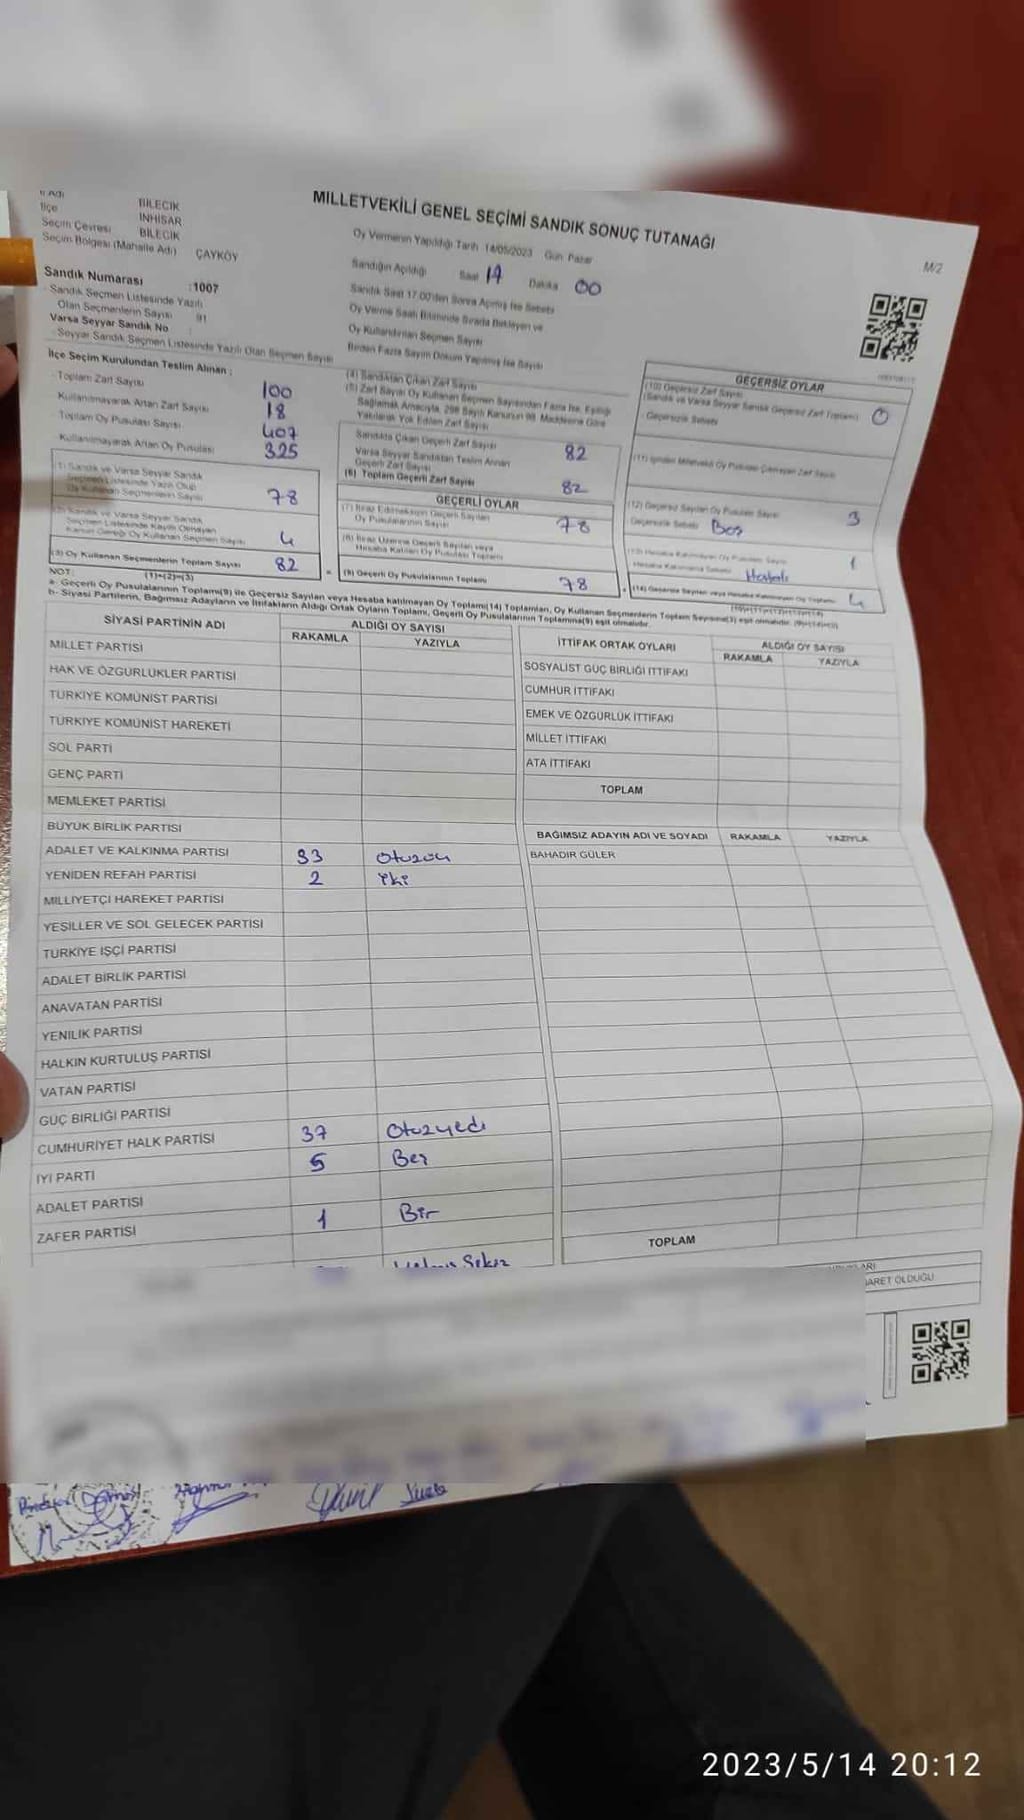 İl Adı BİLECİK
İlçe İNHİSAR
Seçim Çevresi BİLECİK
Seçim Bölgesi (Mahalle Adı) ÇAYKÖY
MİLLETVEKİLİ GENEL SEÇİMİ SANDIK SONUÇ TUTANAĞI
M/2
Oy Vermenin Yapıldığı Tarih 14/05/2023 Gün Pazar
Sandığın Açıldığı Saat 17 Dakika 00
Sandık Saat 17.00'den Sonra Açılmış İse Sebebi
Oy Verme Saati Bitiminde Sırada Bekleyen ve
Oy Kullandırılan Seçmen Sayısı
Birden Fazla Sayım Döküm Yapılmış İse Sayısı
Sandık Numarası :1007
Sandık Seçmen Listesinde Yazılı
Olan Seçmenlerin Sayısı 91
Varsa Seyyar Sandık No :
Seyyar Sandık Seçmen Listesinde Yazılı Olan Seçmen Sayısı
İlçe Seçim Kurulundan Teslim Alınan :
Toplam Zarf Sayısı 100
Kullanılmayarak Artan Zarf Sayısı 18
Toplam Oy Pusulası Sayısı 407
Kullanılmayarak Artan Oy Pusulası 325
(1) Sandık ve Varsa Seyyar Sandık
Seçmen Listesinde Yazılı Olup
Oy Kullanan Seçmenlerin Sayısı 78
(2) Sandık ve Varsa Seyyar Sandık
Seçmen Listesinde Kaydı Olmayan
Kanun Gereği Oy Kullanan Seçmen Sayısı 4
(3) Oy Kullanan Seçmenlerin Toplam Sayısı 82
(1)+(2)=(3)
(4) Sandıktan Çıkan Zarf Sayısı
(5) Zarf Sayısı Oy Kullanan Seçmen Sayısından Fazla İse, Eşitliği
Sağlamak Amacıyla, 298 Sayılı Kanunun 98. Maddesine Göre
Yakılarak Yok Edilen Zarf Sayısı
Sandıkta Çıkan Geçerli Zarf Sayısı 82
Varsa Seyyar Sandıktan Teslim Alınan
Geçerli Zarf Sayısı
(6) Toplam Geçerli Zarf Sayısı 82
GEÇERLİ OYLAR
(7) İtiraz Edilmeksizin Geçerli Sayılan
Oy Pusulalarının Sayısı 78
(8) İtiraz Üzerine Geçerli Sayılan veya
Hesaba Katılan Oy Pusulası Toplamı
(9) Geçerli Oy Pusulalarının Toplamı 78
GEÇERSİZ OYLAR
(10) Geçersiz Zarf Sayısı
(Sandık ve Varsa Seyyar Sandık Geçersiz Zarf Toplamı) 0
Geçersizlik Sebebi
(11) İçinden Milletvekili Oy Pusulası Çıkmayan Zarf Sayısı
(12) Geçersiz Sayılan Oy Pusulası Sayısı 3
Geçersizlik Sebebi Boş
(13) Hesaba Katılmayan Oy Pusulası Sayısı 1
Hesaba Katılmama Sebebi
(14) Geçersiz Sayılan veya Hesaba Katılmayan Oy Toplamı 4
(10)+(11)+(12)+(13)=(14)
NOT:
a- Geçerli Oy Pusulalarının Toplamı(9) ile Geçersiz Sayılan veya Hesaba katılmayan Oy Toplamı(14) Toplamları, Oy Kullanan Seçmenlerin Toplam Sayısına(3) eşit olmalıdır. (9)+(14)=(3)
b- Siyasi Partilerin, Bağımsız Adayların ve İttifakların Aldığı Ortak Oyların Toplamı, Geçerli Oy Pusulalarının Toplamına(9) eşit olmalıdır.
SİYASİ PARTİNİN ADI ALDIĞI OY SAYISI
RAKAMLA YAZIYLA
MİLLET PARTİSİ
HAK VE ÖZGÜRLÜKLER PARTİSİ
TÜRKİYE KOMÜNİST PARTİSİ
TÜRKİYE KOMÜNİST HAREKETİ
SOL PARTİ
GENÇ PARTİ
MEMLEKET PARTİSİ
BÜYÜK BİRLİK PARTİSİ
ADALET VE KALKINMA PARTİSİ 33 Otuzüç
YENİDEN REFAH PARTİSİ 2 iki
MİLLİYETÇİ HAREKET PARTİSİ
YEŞİLLER VE SOL GELECEK PARTİSİ
TÜRKİYE İŞÇİ PARTİSİ
ADALET BİRLİK PARTİSİ
ANAVATAN PARTİSİ
YENİLİK PARTİSİ
HALKIN KURTULUŞ PARTİSİ
VATAN PARTİSİ
GÜÇ BİRLİĞİ PARTİSİ
CUMHURİYET HALK PARTİSİ 37 Otuzyedi
İYİ PARTİ 5 Beş
ADALET PARTİSİ
ZAFER PARTİSİ 1 Bir
Yetmiş Sekiz
İTTİFAK ORTAK OYLARI ALDIĞI OY SAYISI
RAKAMLA YAZIYLA
SOSYALİST GÜÇ BİRLİĞİ İTTİFAKI
CUMHUR İTTİFAKI
EMEK VE ÖZGÜRLÜK İTTİFAKI
MİLLET İTTİFAKI
ATA İTTİFAKI
TOPLAM
BAĞIMSIZ ADAYIN ADI VE SOYADI RAKAMLA YAZIYLA
BAHADIR GÜLER
TOPLAM
ARET OLDUĞU
2023/5/14 20:12